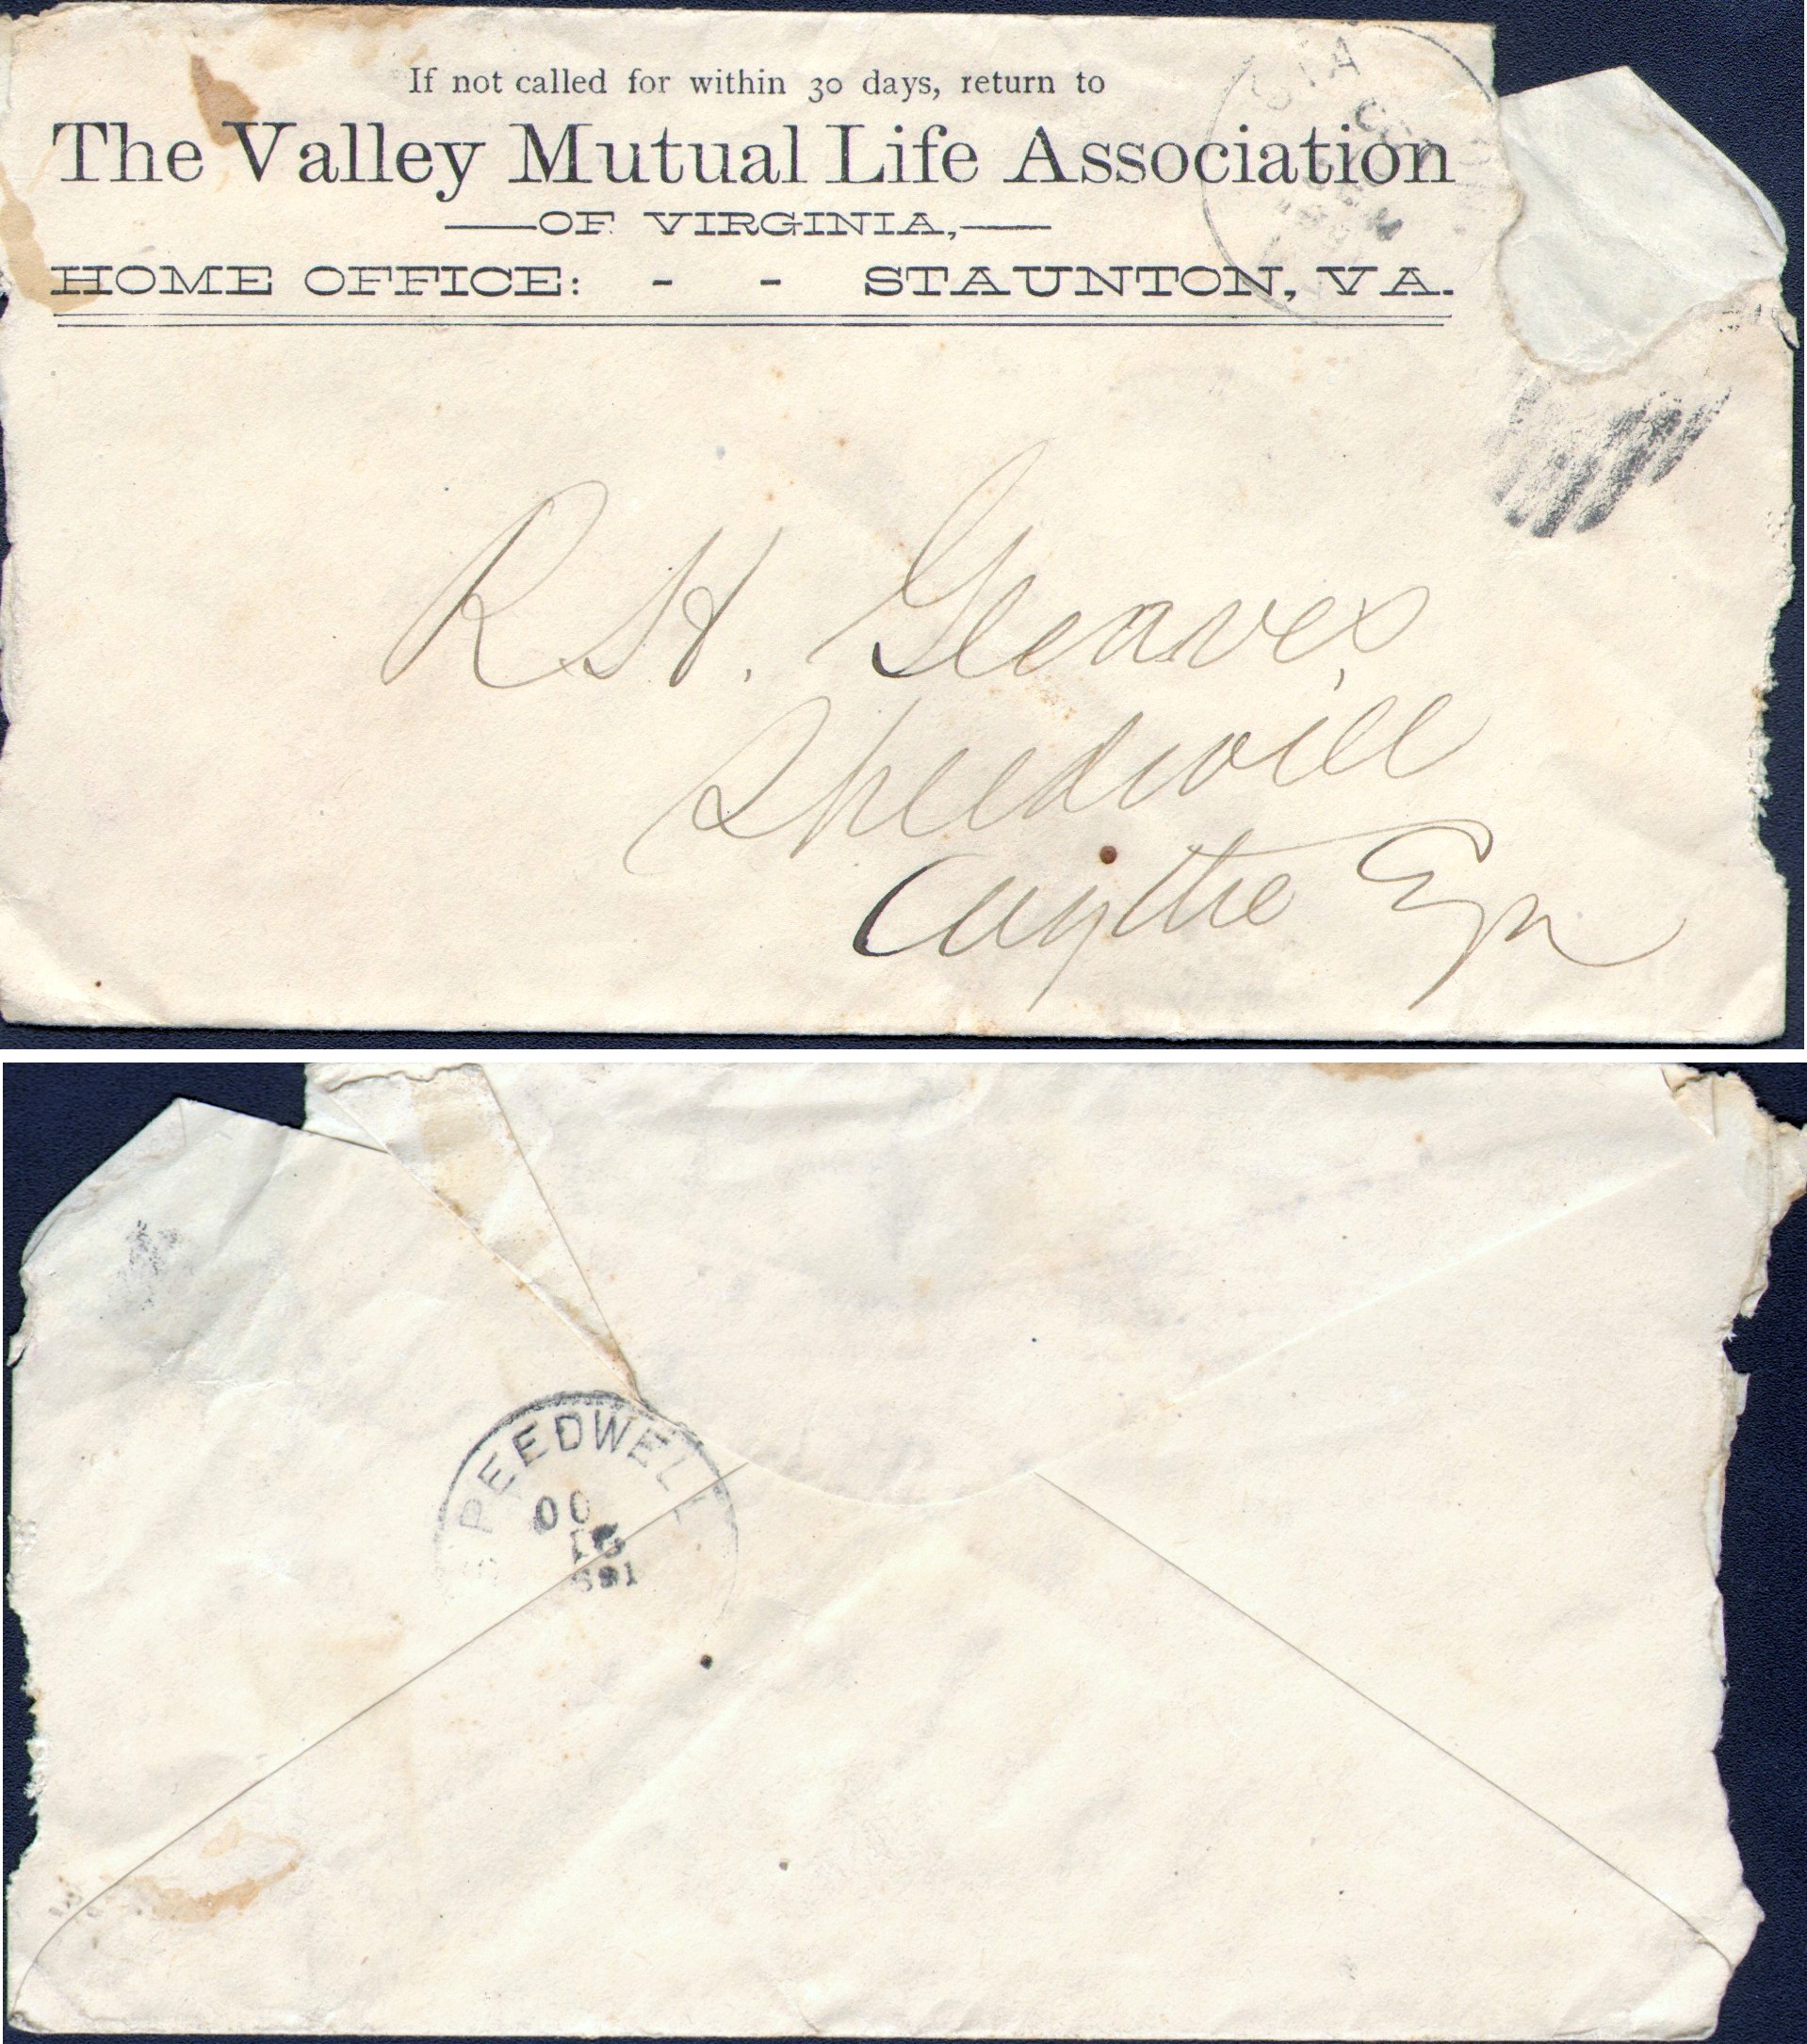 If not called for within 30 days, return to
The Valley Mutual Life Association
—OF VIRGINIA,—
HOME OFFICE: - - STAUNTON, VA.
STA
R H. Gleaves,
Speedwell
Wythe
SPEEDWELL